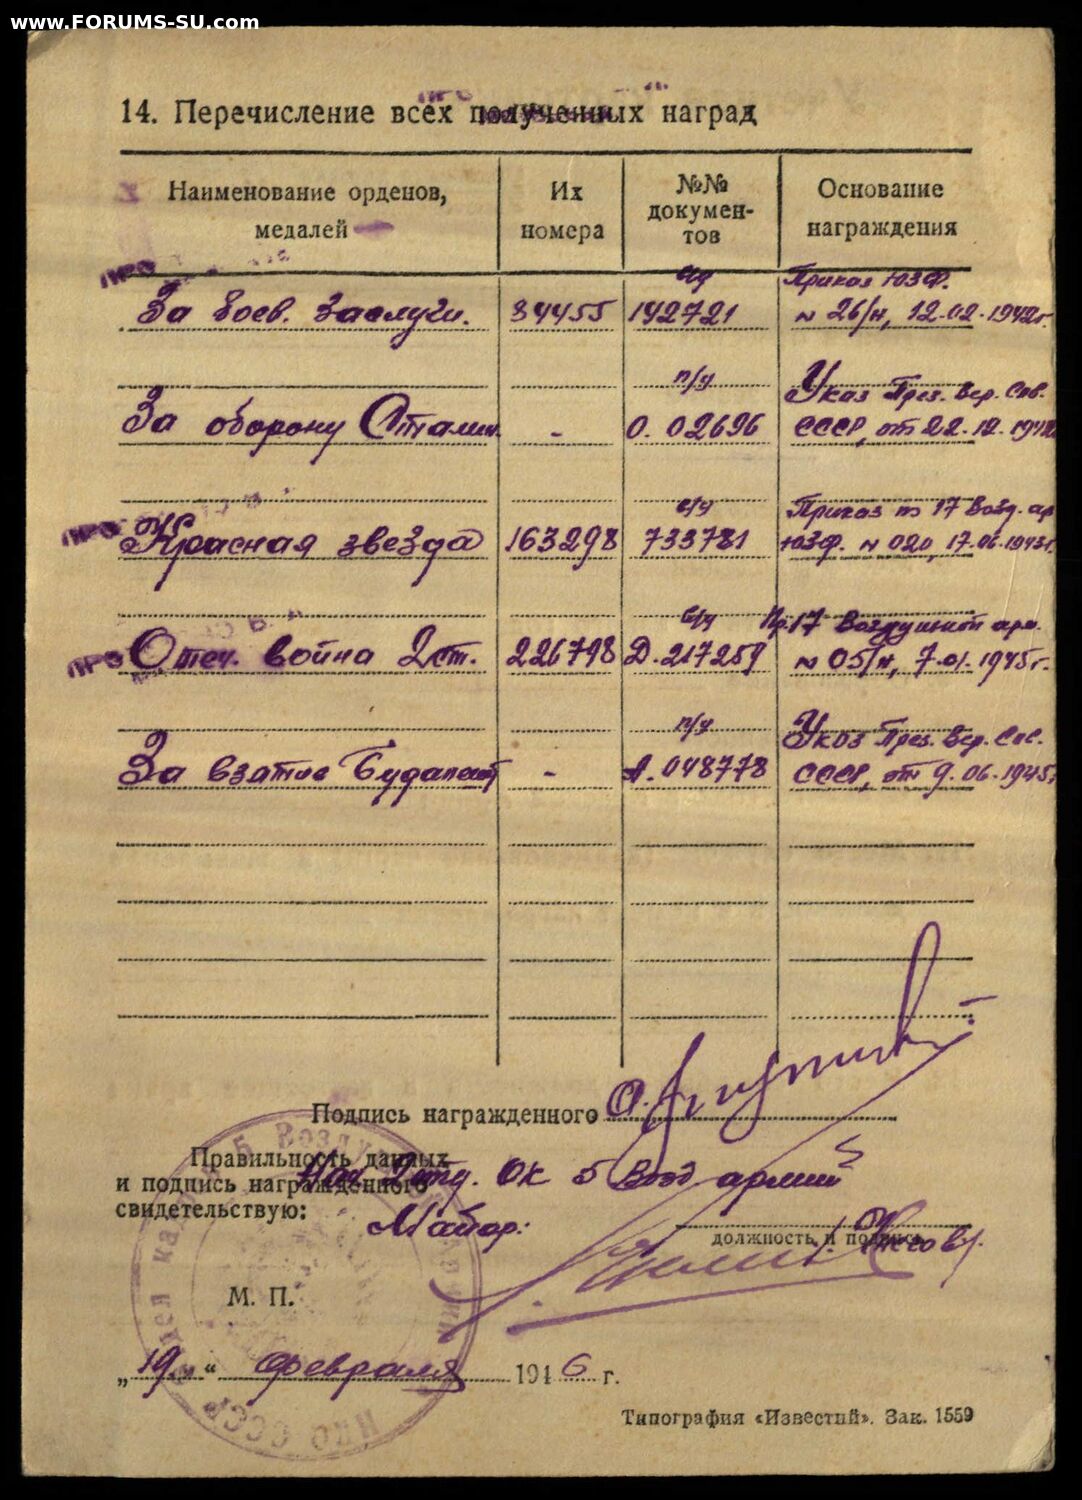 www.FORUMS-SU.com
14. Перечисление всех полученных наград
Наименование орденов, медалей
Их номера
№№ документов
Основание награждения
За боев. заслуги. 84455 142721 Приказ ЮЗФ. № 26/н, 12.02.1942г.
п/у
За оборону Сталин. - О. 02696 Указ През. Вер. Сов. СССР, от 22.12.1942
Красная звезда 163298 733781 Приказ 17 Возд. ар ЮЗФ. № 020, 17.06.1943г.
Отеч. война 2 ст. 226798 Д. 217259 Пр. 17 Воздушной арм. № 05/н, 7.01.1945г.
п/у
За взятие Будапешт - А. 048778 Указ През. Вер. Сов. СССР, от 9.06.1945г
Подпись награжденного
Правильность данных
и подпись награжденного
свидетельствую:
Нач. Отд. ОК 5 Возд армии
Майор:
должность и подпись
М. П.
„19“ февраля 1946 г.
НКО СССР
Типография «Известий». Зак. 1559